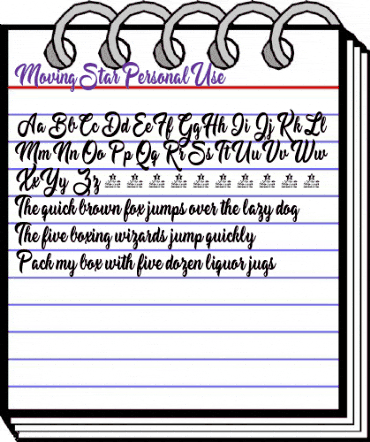 Moving Star Personal Use
Aa Bb Cc Dd Ee Ff Gg Hh Ii Jj Kk Ll
Mm Nn Oo Pp Qq Rr Ss Tt Uu Vv Ww
Xx Yy Zz
The quick brown fox jumps over the lazy dog
The five boxing wizards jump quickly
Pack my box with five dozen liquor jugs